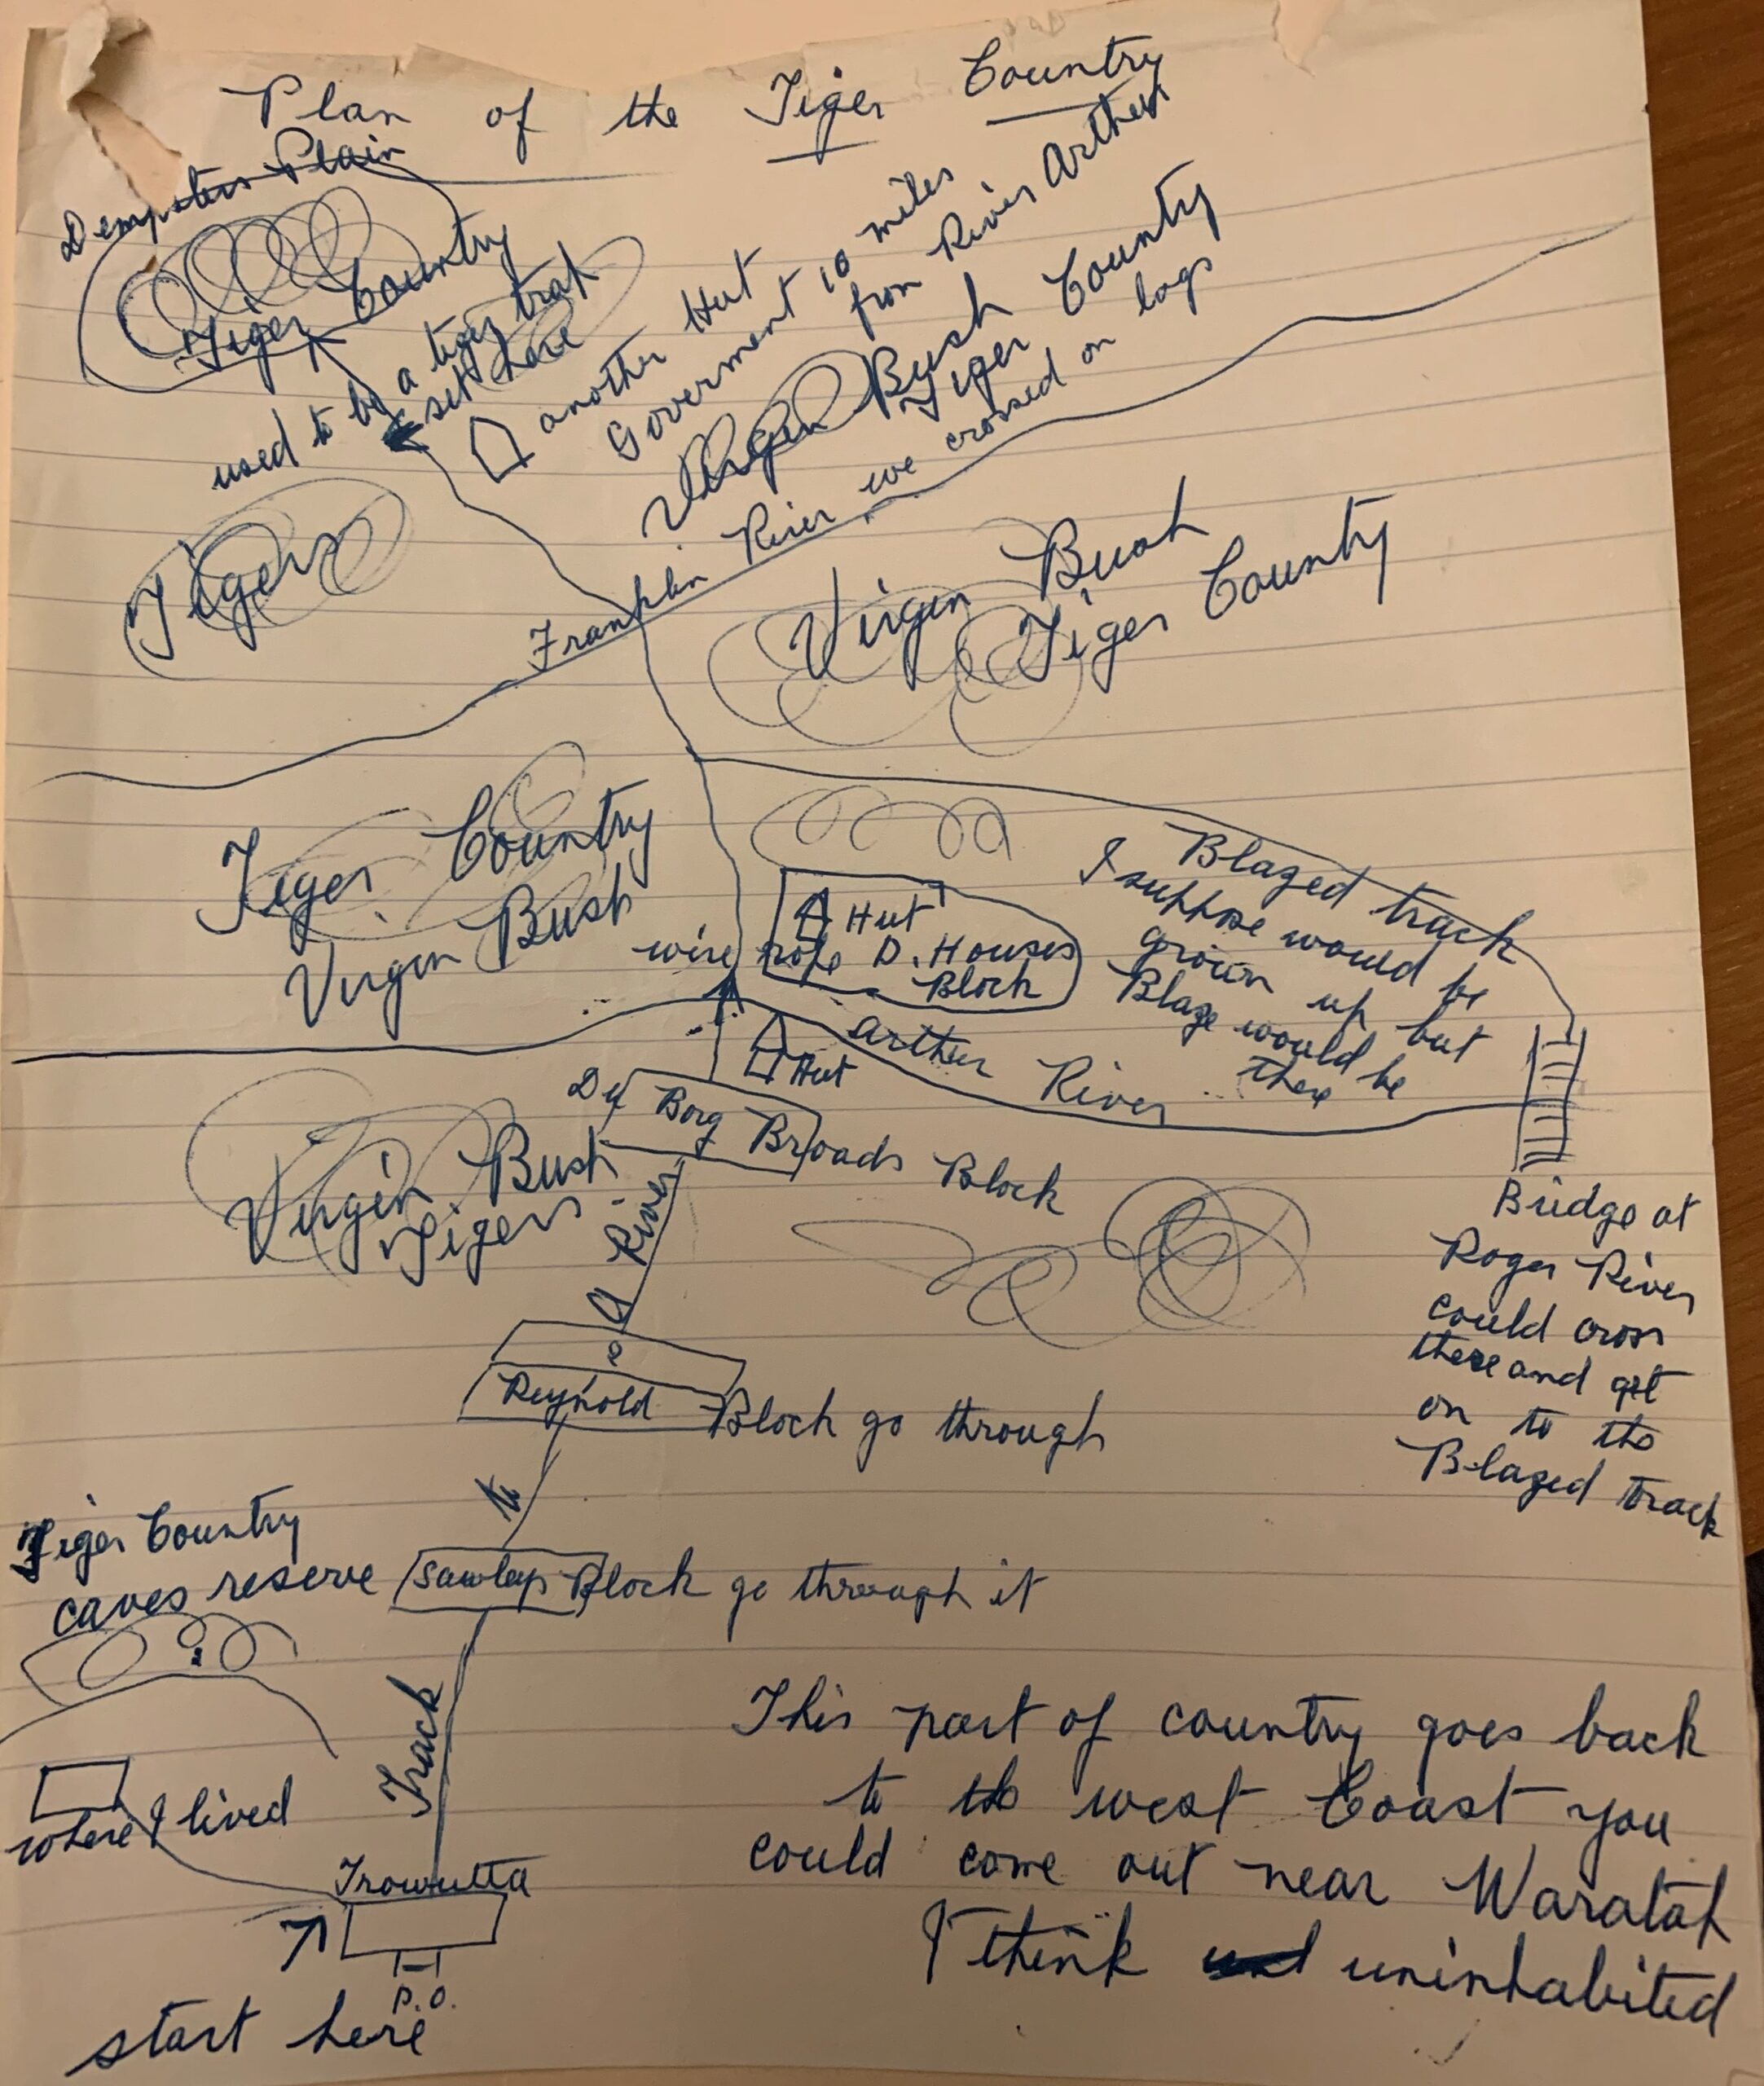 Plan of the Tiger Country
Dempsters Plain
Tiger Country
used to be a tiger trap
set here
another Hut
Goverment 10 miles
from River Arther
Virgin Bush
Tiger Country
Franklin River we crossed on logs
Tigers
Virgin Bush
Tiger County
Tiger Country
Virgin Bush
wire rope
Hut
D. Houses
Block
Blazed track
I suppose would be
grown up but
Blaze would be
there
Arthur River
Hut
Borg Broads Block
Virgin Bush
Tigers
River
Bridge at
Roger River
could cross
there and get
on to the
Blazed track
Reynold Block go through
Tiger Country
caves reserve
Block go through it
Track
where I lived
Trowutta
P.O.
start here
This part of country goes back
to the west Coast you
could come out near Waratah
I think uninhabited